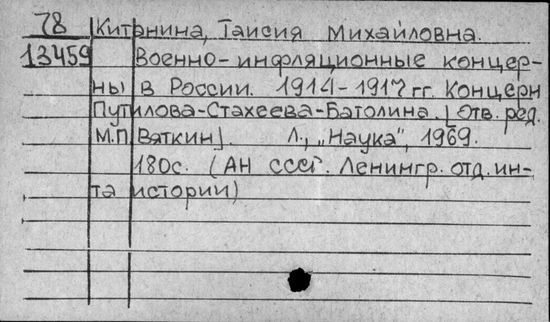 78 Китанина, Таисия Михайловна.
13459 Военно-инфляционные концер-
ны в России. 1914-1917 гг. Концерн
Путилова-Стахеева-Батолина. [Отв. ред.
М.П. Вяткин]. Л., „Наука", 1969.
180с. (АН СССР. Ленингр. отд. ин-
та истории)